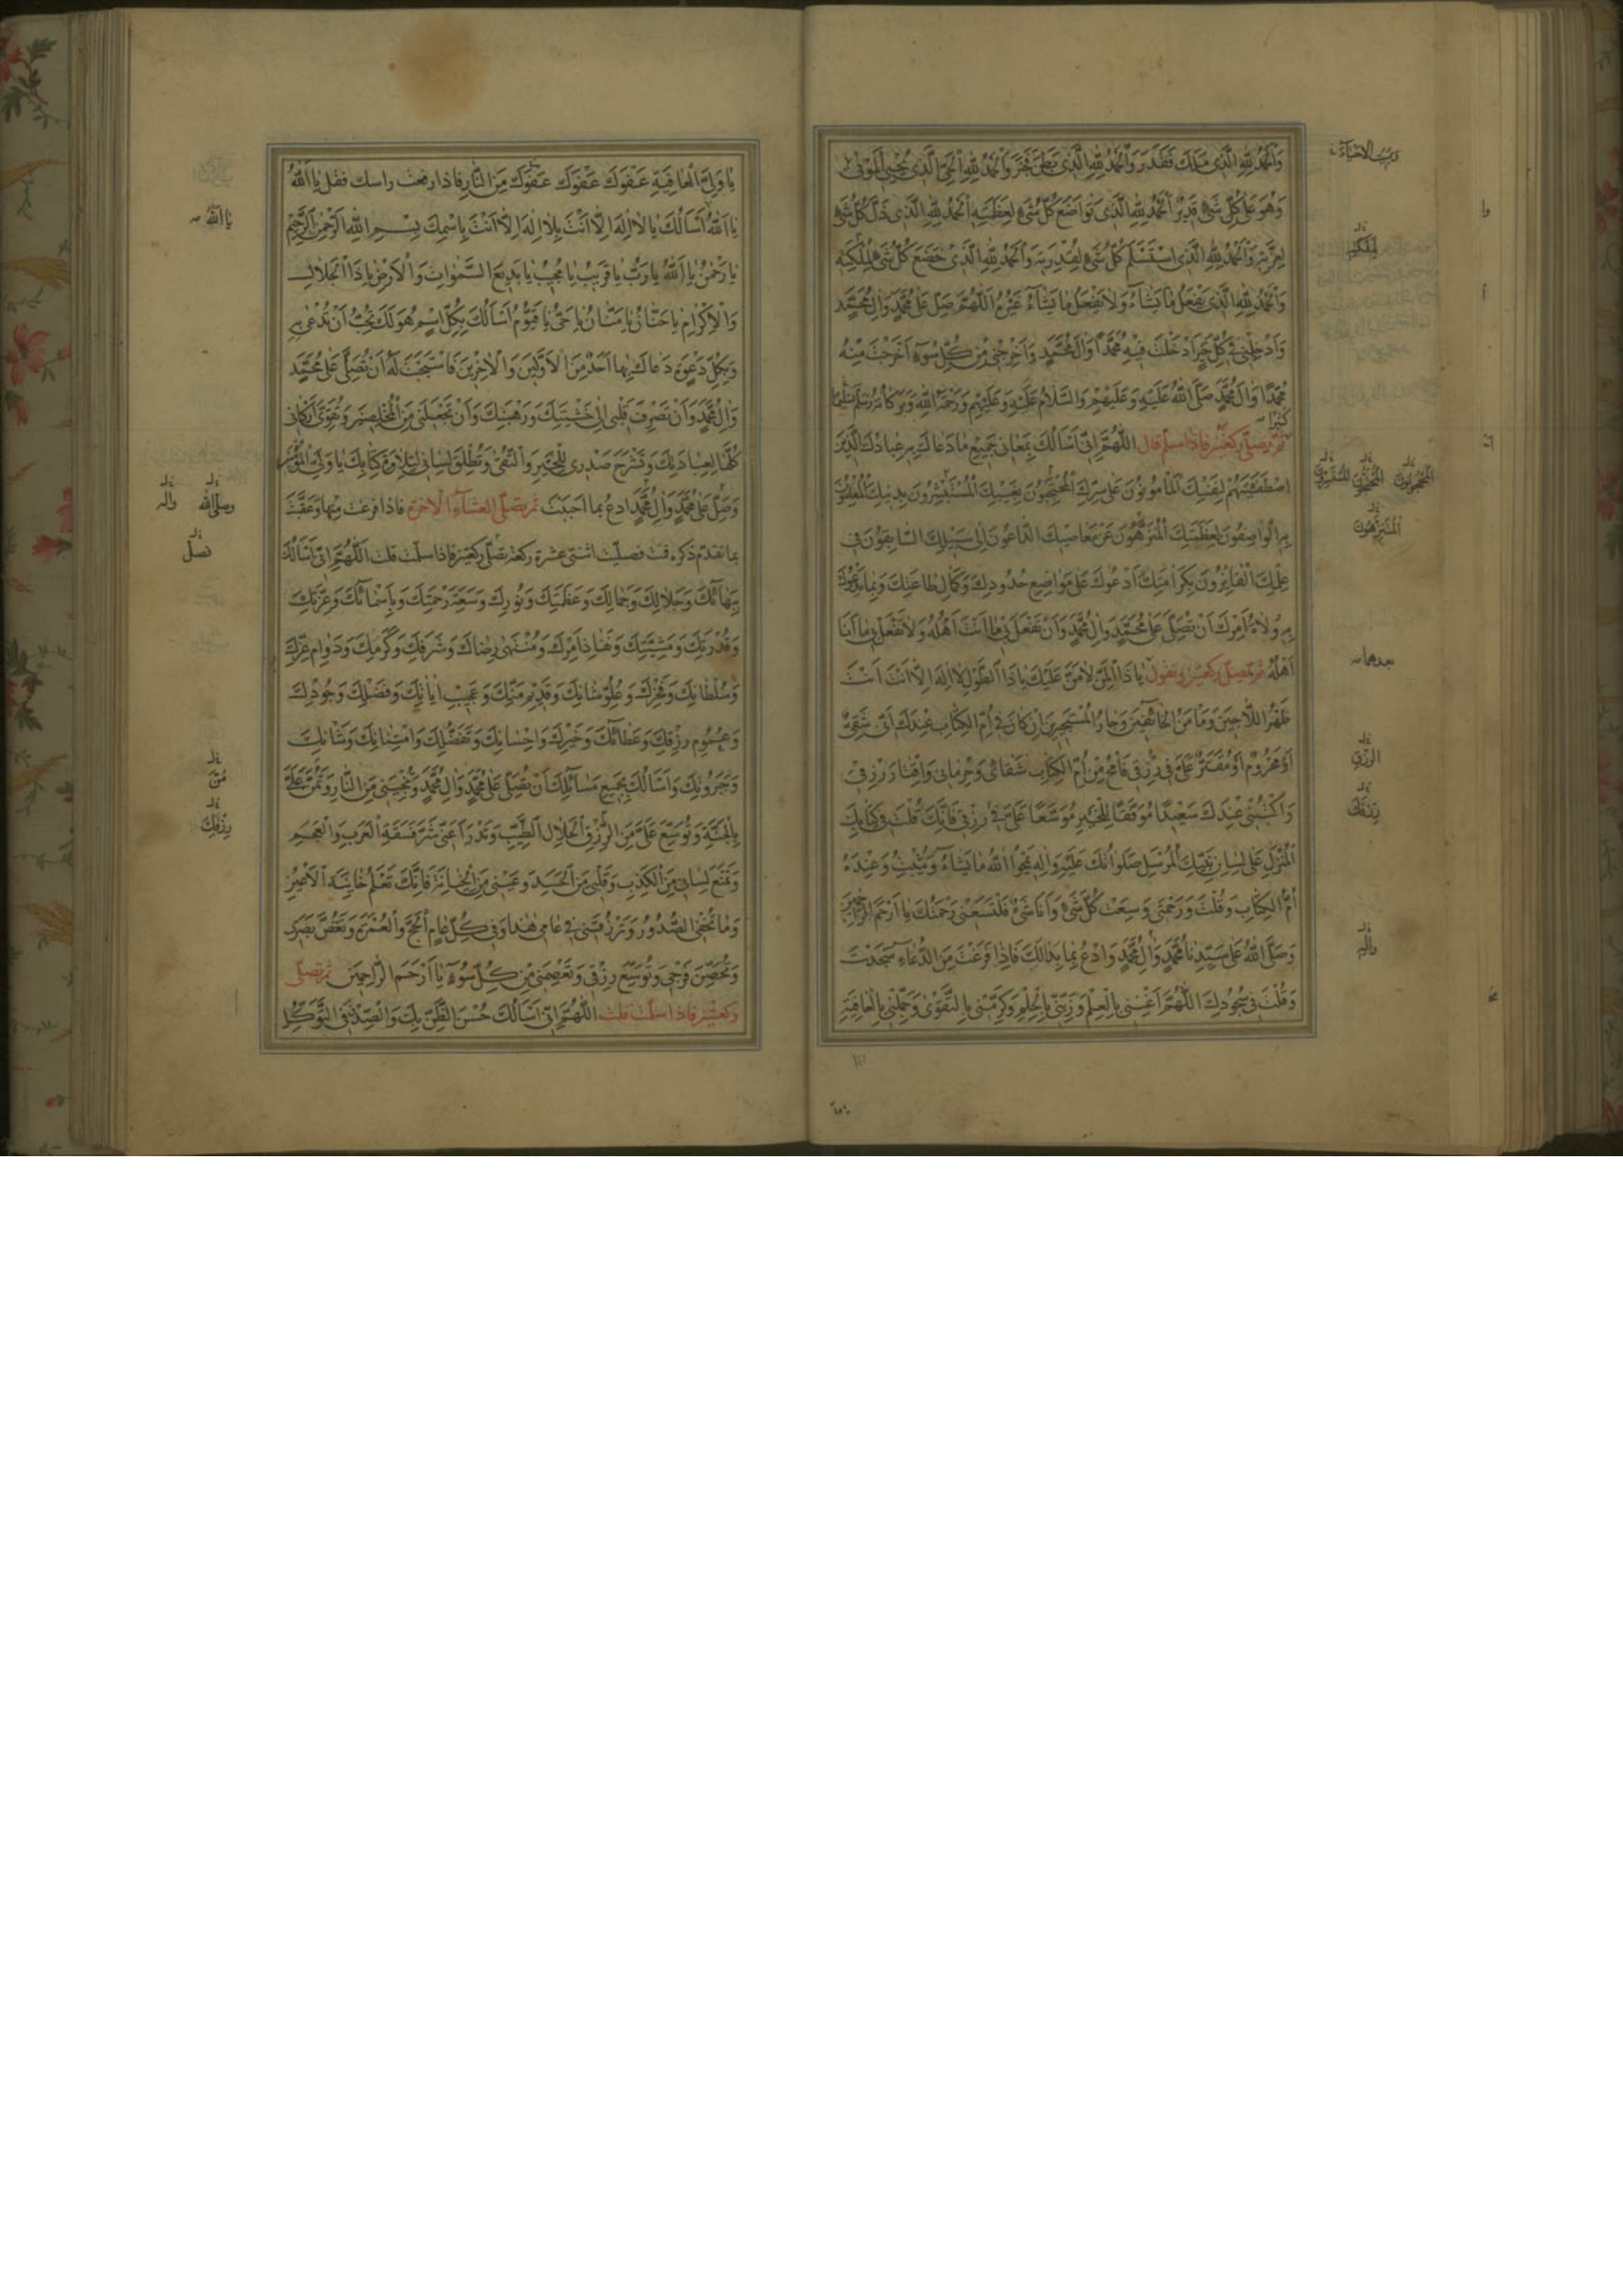 وَالْحَمْدُ لِلّٰهِ الَّذِي مَلَكَ فَقَدَرَ وَالْحَمْدُ لِلّٰهِ الَّذِي بَطَنَ فَخَبَرَ وَالْحَمْدُ لِلّٰهِ الَّذِي يُحْيِي الْمَوْتٰى
وَهُوَ عَلٰى كُلِّ شَيْءٍ قَدِيرٌ اَلْحَمْدُ لِلّٰهِ الَّذِي تَوَاضَعَ كُلُّ شَيْءٍ لِعَظَمَتِهِ اَلْحَمْدُ لِلّٰهِ الَّذِي ذَلَّ كُلُّ شَيْءٍ
لِعِزَّتِهِ وَالْحَمْدُ لِلّٰهِ الَّذِي اسْتَسْلَمَ كُلُّ شَيْءٍ لِقُدْرَتِهِ وَالْحَمْدُ لِلّٰهِ الَّذِي خَضَعَ كُلُّ شَيْءٍ لِمُلْكَتِهِ
وَالْحَمْدُ لِلّٰهِ الَّذِي يَفْعَلُ مَا يَشَاءُ وَلَا يَفْعَلُ مَا يَشَاءُ غَيْرُهُ اَللّٰهُمَّ صَلِّ عَلٰى مُحَمَّدٍ وَاٰلِ مُحَمَّدٍ
وَاَدْخِلْنِي فِي كُلِّ خَيْرٍ اَدْخَلْتَ فِيهِ مُحَمَّدًا وَاٰلَ مُحَمَّدٍ وَاَخْرِجْنِي مِنْ كُلِّ سُوءٍ اَخْرَجْتَ مِنْهُ
مُحَمَّدًا وَاٰلَ مُحَمَّدٍ صَلَّى اللّٰهُ عَلَيْهِ وَعَلَيْهِمْ وَالسَّلَامُ عَلَيْهِ وَعَلَيْهِمْ وَرَحْمَةُ اللّٰهِ وَبَرَكَاتُهُ وَسَلَّمَ تَسْلِيمًا
كَثِيرًا
ثم يصلّي ركعتين فاذا سلّم قال اَللّٰهُمَّ اِنِّي اَسْاَلُكَ بِمَعَانِي جَمِيعِ مَا دَعَاكَ بِهِ عِبَادُكَ الَّذِينَ
اصْطَفَيْتَهُمْ لِنَفْسِكَ الْمَأْمُونُونَ عَلٰى سِرِّكَ الْمُحْتَجِبُونَ بِغَيْبِكَ الْمُسْتَسِرُّونَ بِدِينِكَ الْمُعْلِنُونَ
بِهِ الْوَاصِفُونَ لِعَظَمَتِكَ الْمُنَزَّهُونَ عَنْ مَعَاصِيكَ الدَّاعُونَ اِلٰى سَبِيلِكَ السَّابِقُونَ فِي
عِلْمِكَ الْفَائِزُونَ بِكَرَامَتِكَ اَدْعُوكَ عَلٰى مَوَاضِعِ حُدُودِكَ وَكَمَالِ طَاعَتِكَ وَبِمَا يَدْعُوكَ
بِهِ وُلَاةُ اَمْرِكَ اَنْ تُصَلِّيَ عَلٰى مُحَمَّدٍ وَاٰلِ مُحَمَّدٍ وَاَنْ تَفْعَلَ بِي مَا اَنْتَ اَهْلُهُ وَلَا تَفْعَلْ بِي مَا اَنَا
اَهْلُهُ ثم تصلّي ركعتين وتقول يَا ذَا الْمَنِّ لَا مَنَّ عَلَيْكَ يَا ذَا الطَّوْلِ لَا اِلٰهَ اِلَّا اَنْتَ اَنْتَ
ظَهْرُ اللَّاجِينَ وَمَأْمَنُ الْخَائِفِينَ وَجَارُ الْمُسْتَجِيرِينَ اِنْ كَانَ فِي اُمِّ الْكِتَابِ عِنْدَكَ اَنِّي شَقِيٌّ
اَوْ مَحْرُومٌ اَوْ مُقَتَّرٌ عَلَيَّ فِي رِزْقِي فَامْحُ مِنْ اُمِّ الْكِتَابِ شَقَائِي وَحِرْمَانِي وَاِقْتَارَ رِزْقِي
وَاكْتُبْنِي عِنْدَكَ سَعِيدًا مُوَفَّقًا لِلْخَيْرِ مُوَسَّعًا عَلَيَّ فِي رِزْقِي فَاِنَّكَ قُلْتَ فِي كِتَابِكَ
الْمُنْزَلِ عَلٰى لِسَانِ نَبِيِّكَ الْمُرْسَلِ صَلَوَاتُكَ عَلَيْهِ وَاٰلِهِ يَمْحُوا اللّٰهُ مَا يَشَاءُ وَيُثْبِتُ وَعِنْدَهُ
اُمُّ الْكِتَابِ وَقُلْتَ وَرَحْمَتِي وَسِعَتْ كُلَّ شَيْءٍ وَاَنَا شَيْءٌ فَلْتَسَعْنِي رَحْمَتُكَ يَا اَرْحَمَ الرَّاحِمِينَ
وَصَلَّى اللّٰهُ عَلٰى سَيِّدِنَا مُحَمَّدٍ وَاٰلِ مُحَمَّدٍ وَادْعُ بِمَا بَدَا لَكَ فَاِذَا فَرَغْتَ مِنَ الدُّعَاءِ سَجَدْتَ
وَقُلْتَ فِي سُجُودِكَ اَللّٰهُمَّ اَغْنِنِي بِالْعِلْمِ وَزَيِّنِّي بِالْحِلْمِ وَكَرِّمْنِي بِالتَّقْوٰى وَجَمِّلْنِي بِالْعَافِيَةِ
لِمُلْكِهِ
الْمُتَنَزِّهُونَ
بعدهما
الرِّزْقِ
رِزْقِي
وَاٰلِهِ
يَا وَلِيَّ الْعَافِيَةِ عَفْوَكَ عَفْوَكَ عَفْوَكَ مِنَ النَّارِ فاذا رفعت راسك فقل يَا اَللّٰهُ
يَا اَللّٰهُ اَسْاَلُكَ يَا لَا اِلٰهَ اِلَّا اَنْتَ بِلَا اِلٰهَ اِلَّا اَنْتَ بِاسْمِكَ بِسْمِ اللّٰهِ الرَّحْمٰنِ الرَّحِيمِ
يَا رَحْمٰنُ يَا اَللّٰهُ يَا رَبُّ يَا قَرِيبُ يَا مُجِيبُ يَا بَدِيعَ السَّمٰوَاتِ وَالْاَرْضِ يَا ذَا الْجَلَالِ
وَالْاِكْرَامِ يَا حَنَّانُ يَا مَنَّانُ يَا حَيُّ يَا قَيُّومُ اَسْاَلُكَ بِكُلِّ اسْمٍ هُوَ لَكَ تُحِبُّ اَنْ تُدْعٰى بِهِ
وَبِكُلِّ دَعْوَةٍ دَعَاكَ بِهَا اَحَدٌ مِنَ الْاَوَّلِينَ وَالْاٰخِرِينَ فَاسْتَجَبْتَ لَهُ اَنْ تُصَلِّيَ عَلٰى مُحَمَّدٍ
وَاٰلِ مُحَمَّدٍ وَاَنْ تَصْرِفَ قَلْبِي اِلٰى خَشْيَتِكَ وَرَهْبَتِكَ وَاَنْ تَجْعَلَنِي مِنَ الْمُخْلَصِينَ وَتُقَوِّيَ اَرْكَانِي
كُلَّهَا لِعِبَادَتِكَ وَتَشْرَحَ صَدْرِي لِلْخَيْرِ وَالتُّقٰى وَتُطْلِقَ لِسَانِي لِتِلَاوَةِ كِتَابِكَ يَا وَلِيَّ الْمُؤْمِنِينَ
وَصَلِّ عَلٰى مُحَمَّدٍ وَاٰلِ مُحَمَّدٍ ادع بما احببت ثم تصلّي العشاء الاخرة فاذا فرغت منها وعقّبت
بما تقدّم ذكره قمت فصلّيت اثنتي عشرة ركعة تصلّي ركعتين فاذا سلّمت قلت اَللّٰهُمَّ اِنِّي اَسْاَلُكَ
بِبَهَائِكَ وَجَلَالِكَ وَجَمَالِكَ وَعَظَمَتِكَ وَنُورِكَ وَسَعَةِ رَحْمَتِكَ وَبِاَسْمَائِكَ وَعِزَّتِكَ
وَقُدْرَتِكَ وَمَشِيَّتِكَ وَنَفَاذِ اَمْرِكَ وَمُنْتَهٰى رِضَاكَ وَشَرَفِكَ وَكَرَمِكَ وَدَوَامِ عِزِّكَ
وَسُلْطَانِكَ وَفَخْرِكَ وَعُلُوِّ شَانِكَ وَقَدِيمِ مَنِّكَ وَعَجِيبِ اٰيَاتِكَ وَفَضْلِكَ وَجُودِكَ
وَعُمُومِ رِزْقِكَ وَعَطَائِكَ وَخَيْرِكَ وَاِحْسَانِكَ وَتَفَضُّلِكَ وَامْتِنَانِكَ وَشَانِكَ
وَجَبَرُوتِكَ وَاَسْاَلُكَ بِجَمِيعِ مَسَائِلِكَ اَنْ تُصَلِّيَ عَلٰى مُحَمَّدٍ وَاٰلِ مُحَمَّدٍ وَتُنْجِيَنِي مِنَ النَّارِ وَتَمُنَّ عَلَيَّ
بِالْجَنَّةِ وَتُوَسِّعَ عَلَيَّ مِنَ الرِّزْقِ الْحَلَالِ الطَّيِّبِ وَتَدْرَاَ عَنِّي شَرَّ فَسَقَةِ الْعَرَبِ وَالْعَجَمِ
وَتَمْنَعَ لِسَانِي مِنَ الْكَذِبِ وَقَلْبِي مِنَ الْحَسَدِ وَعَيْنِي مِنَ الْخِيَانَةِ فَاِنَّكَ تَعْلَمُ خَائِنَةَ الْاَعْيُنِ
وَمَا تُخْفِي الصُّدُورُ وَتَرْزُقَنِي فِي عَامِي هٰذَا وَفِي كُلِّ عَامٍ الْحَجَّ وَالْعُمْرَةَ وَتَغُضَّ بَصَرِي
وَتُحَصِّنَ فَرْجِي وَتُوَسِّعَ رِزْقِي وَتَعْصِمَنِي مِنْ كُلِّ سُوءٍ يَا اَرْحَمَ الرَّاحِمِينَ ثم تصلّي
ركعتين فاذا سلّمت قلت اَللّٰهُمَّ اِنِّي اَسْاَلُكَ حُسْنَ الظَّنِّ بِكَ وَالصِّدْقَ فِي التَّوَكُّلِ
يَا اَللّٰهُ
وصلّى الله
واله
فصلّ
مَنِّ
رِزْقِكَ